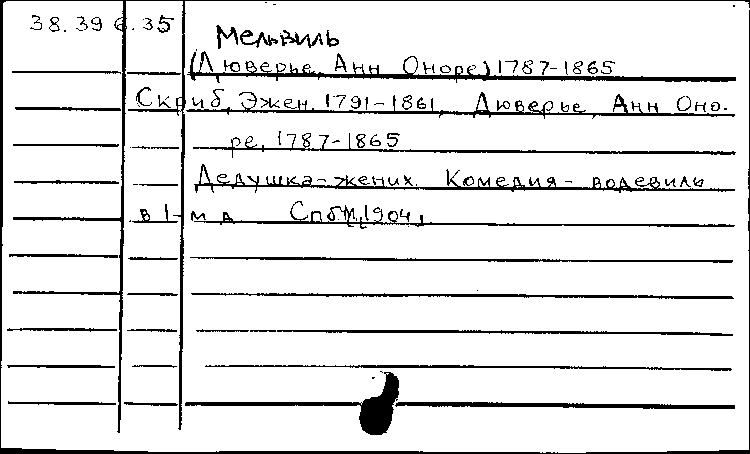 38.39 6.35
Мельвиль
(Дюверье, Анн Оноре) 1787-1865
Скриб, Эжен, 1791-1861, Дюверье, Анн Оно-
ре, 1787-1865
Дедушка-жених. Комедия-водевиль
в 1-м д. Спб, 1904,